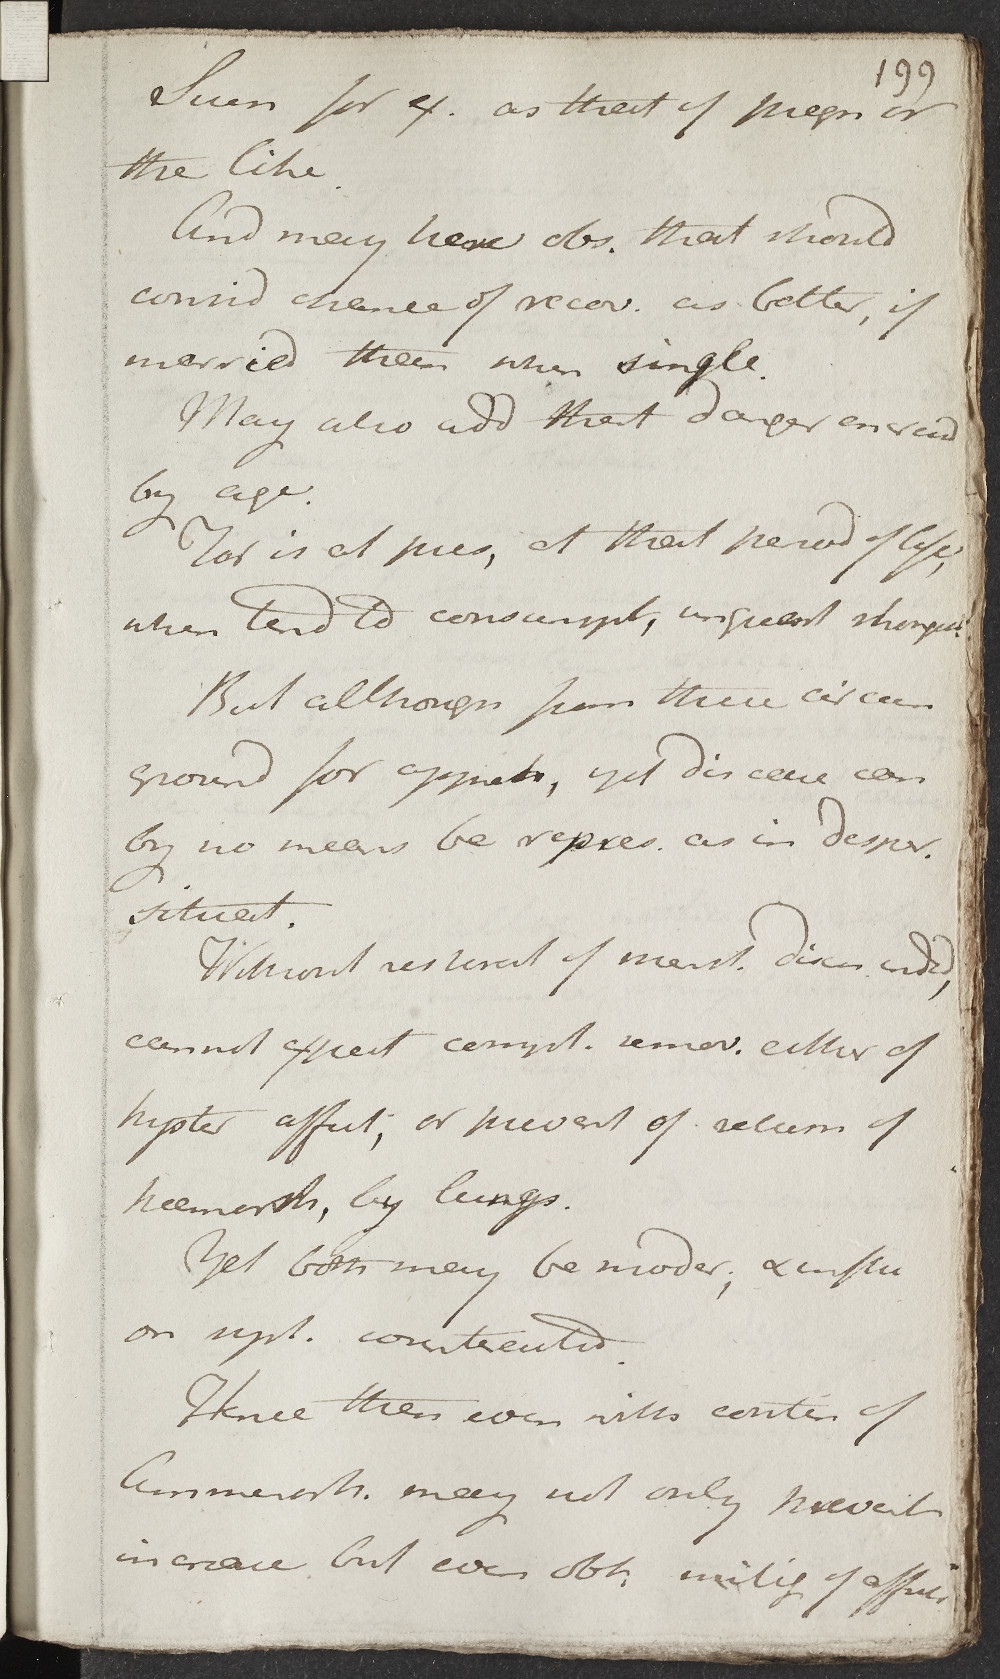 199
Such for ex. as that of pregn or
the like.
And may here obs. that should
consid chance of recov. as better, if
married than when single.
May also add that danger encreasd
by age.
For is at pres, at that period of life,
when tend to consumpt, unquest strongest.
But although from these circum
ground for appreh, yet disease can
by no means be repres. as in desper.
situat.
Without restorat of menst. disch. indeed,
cannot expect compl. remov. either of
hyster affect; or prevent of return of
haemorrh, by lungs.
Yet both may be moder; & influ
on syst. counteracted.
Hence then even with contin of
Amenorrh. may not only prevent
increase but even obt. mitig of affect